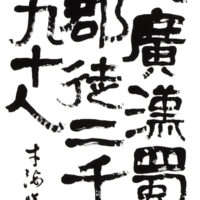 廣漢蜀
郡徒二千
九十人